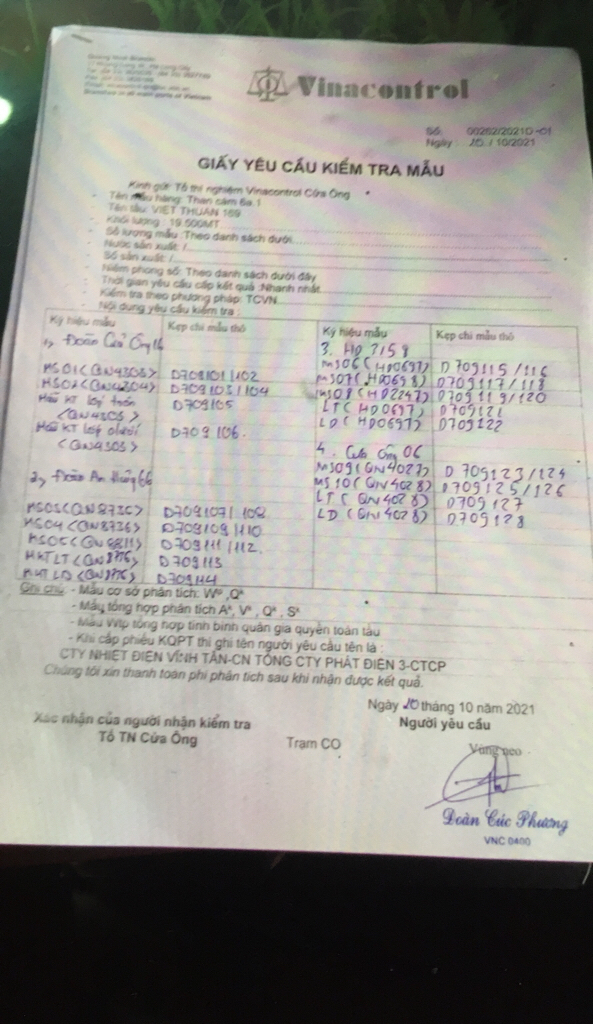 Vinacontrol
Số: 00282/2021D-01
Ngày: 20/10/2021
GIẤY YÊU CẦU KIỂM TRA MẪU
Kính gửi: Tổ thí nghiệm Vinacontrol Cửa Ông
- Tên mẫu hàng: Than cám 6a.1
Tên tàu: VIỆT THUẬN 169
- Khối lượng: 19.500MT
- Số lượng mẫu: Theo danh sách dưới
- Nước sản xuất: /
- Số sản xuất: /
- Niêm phong số: Theo danh sách dưới đây
- Thời gian yêu cầu cấp kết quả: Nhanh nhất
- Kiểm tra theo phương pháp: TCVN
- Nội dung yêu cầu kiểm tra:
Ký hiệu mẫu Kẹp chì mẫu thô
1, Đoàn Cửa Ông 16
MS01 (QN4303) D709101/102
MS02 (QN4304) D709103/104
Mẫu KT lớp trên D709105
(QN4303)
Mẫu KT lớp dưới D709106
(QN4303)
2, Đoàn An 66
MS03 (QN8736) D709107/108
MS04 (QN8736) D709109/110
MS05 (QN8811) D709111/112
MKT LT (QN8776) D709113
MKT LD (QN8776) D709114
Ký hiệu mẫu Kẹp chì mẫu thô
3. HD 3158
MS06 (HD0697) D709115/116
MS07 (HD0698) D709117/118
MS08 (HD2247) D709119/120
LT (HD0697) D709121
LD (HD0697) D709122
4. Cửa Ông 06
MS09 (QN4027) D709123/124
MS10 (QN4028) D709125/126
LT (QN4028) D709127
LD (QN4028) D709128
Ghi chú: - Mẫu cơ sở phân tích: W, Q
- Mẫu tổng hợp phân tích A, V, Q, S
- Mẫu Wtp tổng hợp tính bình quân gia quyền toàn tàu
- Khi cấp phiếu KQPT thì ghi tên người yêu cầu tên là:
CTY NHIỆT ĐIỆN VĨNH TÂN-CN TỔNG CTY PHÁT ĐIỆN 3-CTCP
Chúng tôi xin thanh toán phí phân tích sau khi nhận được kết quả.
Ngày 20 tháng 10 năm 2021
Xác nhận của người nhận kiểm tra Người yêu cầu
Tổ TN Cửa Ông Trạm CO Vùng neo
Đoàn Cúc Phương
VNC 0400